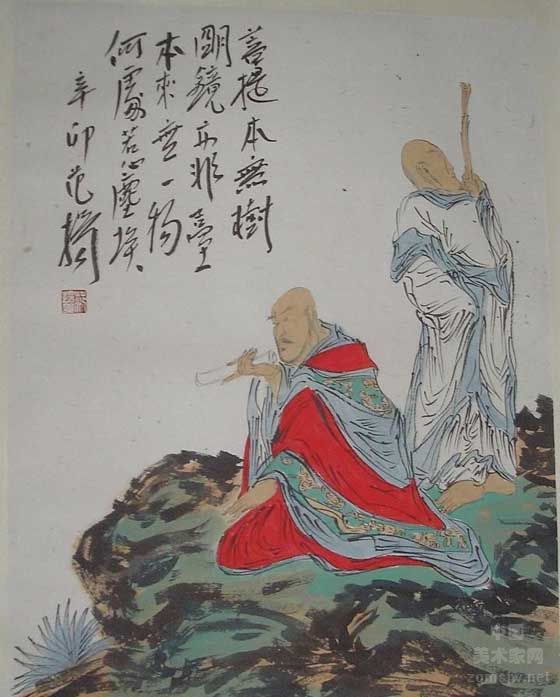 菩提本無樹
明鏡亦非臺
本来無一物
何處惹塵埃
辛卯 范揚
中国
美术家网